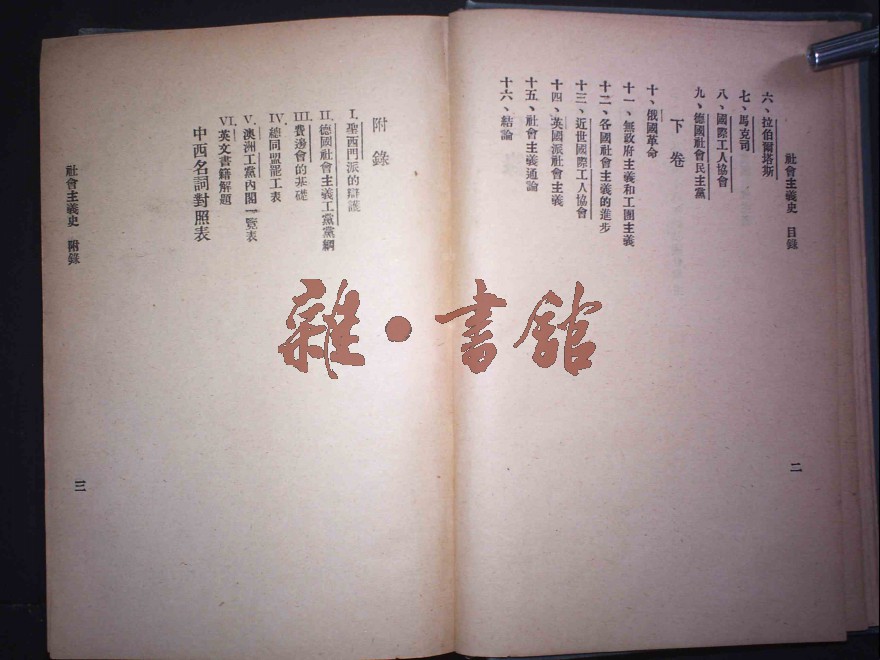 社會主義史 目錄
六、拉伯爾塔斯
七、馬克司
八、國際工人協會
九、德國社會民主黨
下卷
十、俄國革命
十一、無政府主義和工團主義
十二、各國社會主義的進步
十三、近世國際工人協會
十四、英國派社會主義
十五、社會主義通論
十六、結論
二
附錄
I. 聖西門派的辯護
II. 德國社會主義工黨黨綱
III. 費邊會的基礎
IV. 總同盟罷工表
V. 澳洲工黨內閣一覽表
VI. 英文書籍解題
中西名詞對照表
社會主義史 附錄
三
雜•書館